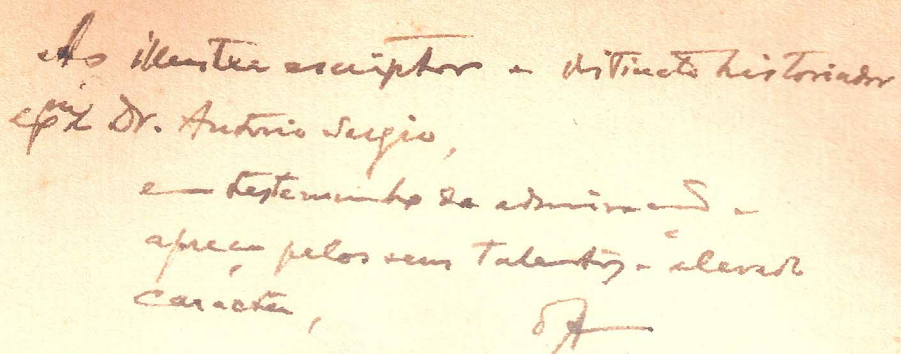 Ao illustre escriptor e distincto historiador
Exmo Dr. António Sergio,
em testemunho de admiração e
apreço pelos seus talentos e elevado
carácter,
O A